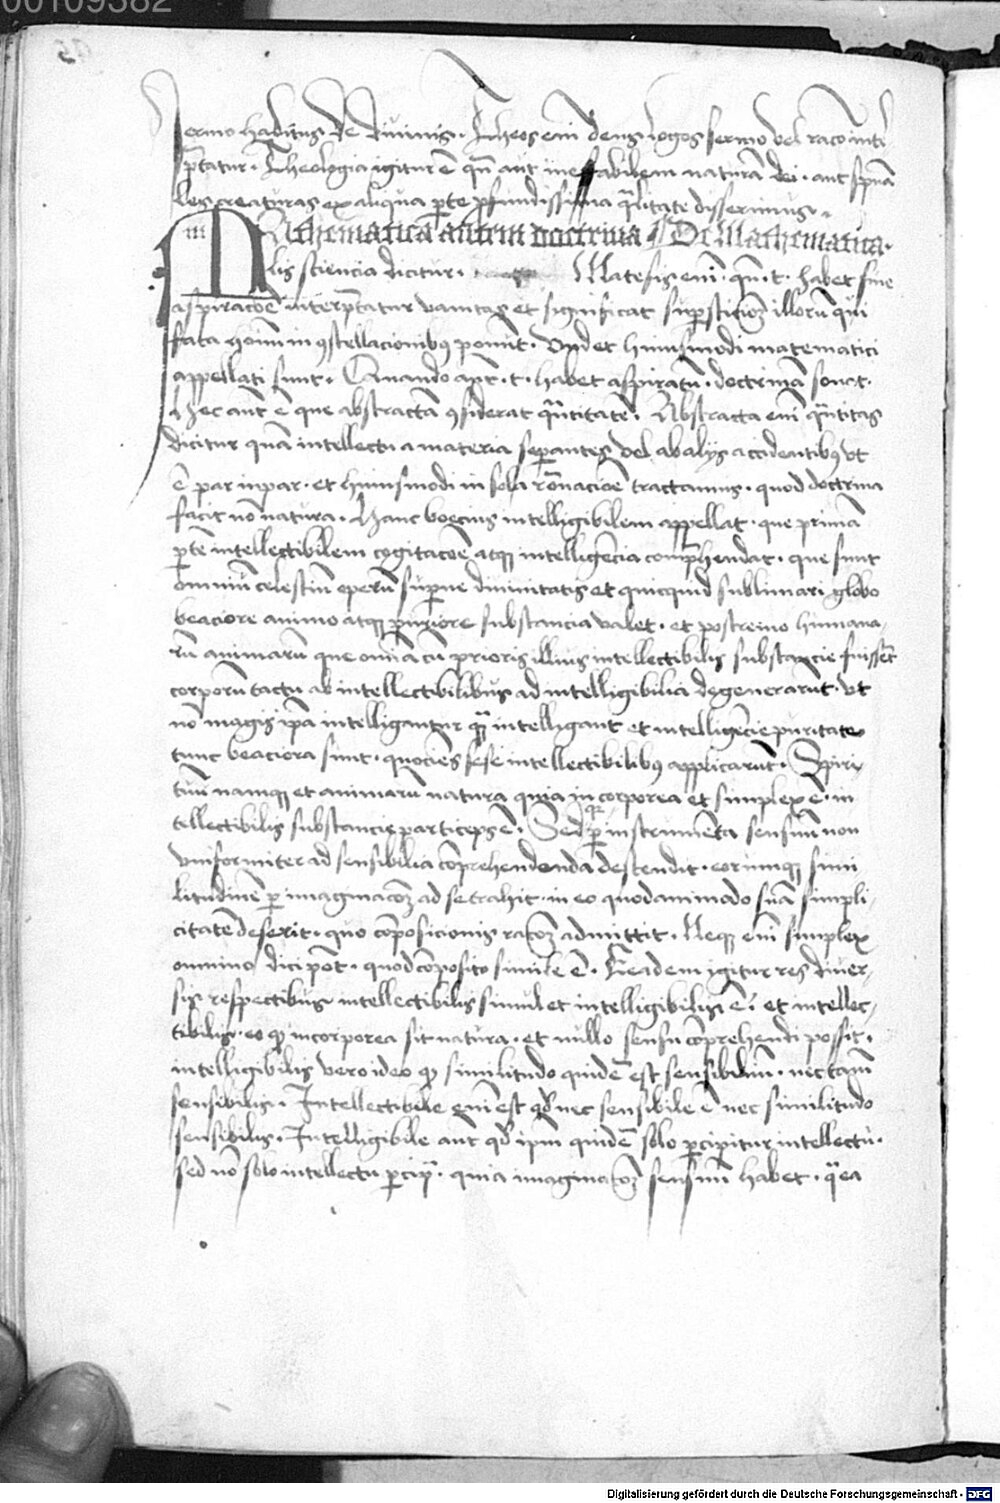 00109382
sermo habitus de diuinis. Theos em̄ deus logos sermo vel racō inter
p̄tatur. Theologia igitur ē qn̄ aut ineffabilem naturā dei. aut spūa
les creaturas ex aliqua ꝑte ꝓfundissima q̄litate disserimus.
MAthematica autem doctrina De Mathematica.
lis sciencia dicitur. Matesis em̄. qn̄. t. habet sine
aspiracōe interp̄tatur vanitas et significat suꝑsticiōȝ illorū qui
fata hoīm in ꝯstellacionibꝰ ponūt. Vnd et huiusmodi matematici
appellati sunt. Quando aut̄. t. habet aspiratū. doctrinā sonat.
Hec aut̄ ē que abstractā ꝯsiderat qn̄titatē. Abstracta em̄ qn̄titas
dicitur quā intellectu a materia seꝑantes vel ab alijs accidentibꝰ vt
ē par inpar. et huiusmodi in sola rōnaciōe tractamus. quod doctrina
facit nō natura. Hanc boecius intelligibilem appellat. que primā
ꝑtē intellectibilem cogitacōe atqȝ intelligēcia comp̄hendat. que sunt
omniū celestiū operū suꝑne diuinitatis et quicquid sub lunari globo
beaciore animo atqȝ puriore substancia valet. et postremo humana,
rū animarū que omīa cū prioris illius intellectibilis substancie fuissēt
corporū tactu ab intellectibilibus ad intelligibilia degenerarūt. vt
nō magis ip̄a intelligantur qȝ intelligant et intelligēcie puritate
tunc beaciora sunt. quociēs sese intellectibilibꝰ applicarūt. Spiri,
tuū namqȝ et animarū natura quia incorporea et simplex ē. in
tellectibilis substancie particeps ē. Sed qȝ ꝑ instrumēta sensuū non
vniformiter ad sensibilia cōprehendenda descendit. eorumqȝ simi
litudinē ꝑ imaginacōȝ ad se trahit. in eo quodammodo suā simpli,
citatē deserit. quo cōposicionis racōȝ admittit. Neqȝ em̄ simplex
omnino dici pōt. quod cōposito simile ē. Eadem igitur res diuer,
sis respectibus intellectibilis simul et intelligibilis ē. et intellec,
tibilis. eo ꝙ incorporea sit natura. et nullo sensu cōprehendi possit.
intelligibilis vero ideo ꝙ similitudo quidē est sensibiliū. nec tam̄
sensibilis. Intellectibile em̄ est qd̄ nec sensibile ē nec similitudo
sensibilis. Intelligibile aut̄ qd̄ ip̄m quidē solo ꝑcipitur intellectu.
sed nō solo intellectu ꝑcipit̄. quia imaginacōȝ sensum̄ habet. q̄ ea
Digitalisierung gefördert durch die Deutsche Forschungsgemeinschaft - DFG